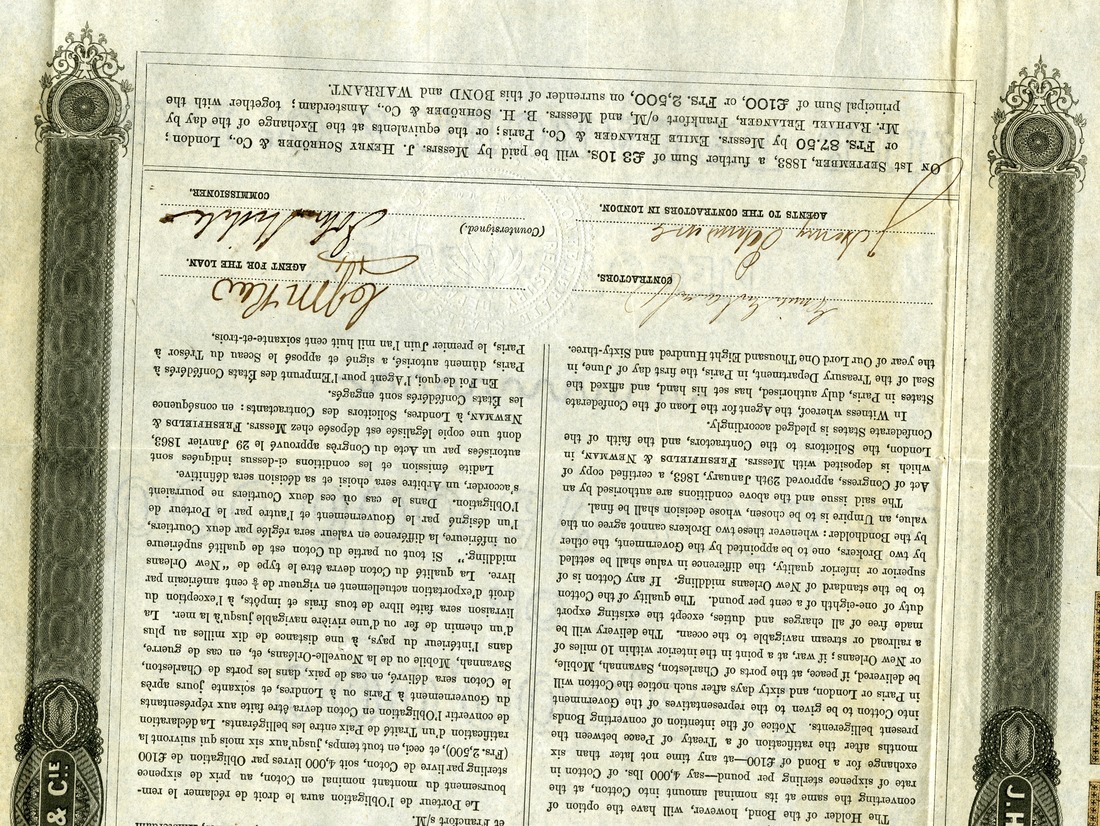 The Holder of the Bond, however, will have the option of
converting the same at its nominal amount into Cotton, at the
rate of sixpence sterling per pound—say 4,000 lbs. of Cotton in
exchange for a Bond of £100—at any time not later than six
months after the ratification of a Treaty of Peace between the
present belligerents. Notice of the intention of converting Bonds
into Cotton to be given to the representatives of the Government
in Paris or London, and sixty days after such notice the Cotton will
be delivered, if peace, at the ports of Charleston, Savannah, Mobile,
or New Orleans; if war, at a point in the interior within 10 miles of
a railroad or stream navigable to the ocean. The delivery will be
made free of all charges and duties, except the existing export
duty of one-eighth of a cent per pound. The quality of the Cotton
to be the standard of New Orleans middling. If any Cotton is of
superior or inferior quality, the difference in value shall be settled
by two Brokers, one to be appointed by the Government, the other
by the Bondholder: whenever these two Brokers cannot agree on the
value, an Umpire is to be chosen, whose decision shall be final.
The said issue and the above conditions are authorised by an
Act of Congress, approved 29th January, 1863, a certified copy of
which is deposited with Messrs. FRESHFIELDS & NEWMAN, in
London, the Solicitors to the Contractors, and the faith of the
Confederate States is pledged accordingly.
In Witness whereof, the Agent for the Loan of the Confederate
States in Paris, duly authorised, has set his hand, and affixed the
Seal of the Treasury Department, in Paris, the first day of June, in
the year of Our Lord One Thousand Eight Hundred and Sixty-three.
et Francfort s/M.
Le Porteur de l'Obligation aura le droit de réclamer le rem-
boursement du montant nominal en Coton, au prix de sixpence
sterling par livre de Coton, soit 4,000 livres par Obligation de £100
(Frs. 2,500), et ceci, en tout temps, jusqu'aux six mois qui suivront la
ratification d'un Traité de Paix entre les belligérants. La déclaration
de convertir l'Obligation en Coton devra être faite aux représentants
du Gouvernement à Paris ou à Londres, et soixante jours après
le Coton sera délivré, en cas de paix, dans les ports de Charleston,
Savannah, Mobile ou de la Nouvelle-Orléans, et, en cas de guerre,
dans l'intérieur du pays, à une distance de dix milles au plus
d'un chemin de fer ou d'une rivière navigable jusqu'à la mer. La
livraison sera faite libre de tous frais et impôts, à l'exception du
droit d'exportation actuellement en vigueur de ⅛ cent américain par
livre. La qualité du Coton devra être le type de "New Orleans
middling." Si tout ou partie du Coton est de qualité supérieure
ou inférieure, la différence en valeur sera réglée par deux Courtiers,
l'un désigné par le Gouvernement et l'autre par le Porteur de
l'Obligation. Dans le cas où ces deux Courtiers ne pourraient
s'accorder, un Arbitre sera choisi et sa décision sera définitive.
Ladite émission et les conditions ci-dessus indiquées sont
autorisées par un Acte du Congrès approuvé le 29 Janvier 1863,
dont une copie légalisée est déposée chez Messrs. FRESHFIELDS &
NEWMAN, à Londres, Solicitors des Contractants: en conséquence
les États Confédérés sont engagés.
En Foi de quoi, l'Agent pour l'Emprunt des États Confédérés à
Paris, dûment autorisé, a signé et apposé le Sceau du Trésor à
Paris, le premier Juin l'an mil huit cent soixante-et-trois,
CONTRACTORS.
AGENT FOR THE LOAN.
(Countersigned.)
J Henry Schroder
AGENTS TO THE CONTRACTORS IN LONDON.
COMMISSIONER.
ON 1st SEPTEMBER, 1883, a further Sum of £3 10s. will be paid by Messrs. J. HENRY SCHRÖDER & Co., London;
or FRS. 87.50 by Messrs. EMILE ERLANGER & Co., Paris; or the equivalents at the Exchange of the day by
Mr. RAPHAEL ERLANGER, Frankfort o/M, and Messrs. B. H. SCHRÖDER & Co., Amsterdam; together with the
principal Sum of £100, or FRS. 2,500, on surrender of this BOND and WARRANT.
J. H
& CIE